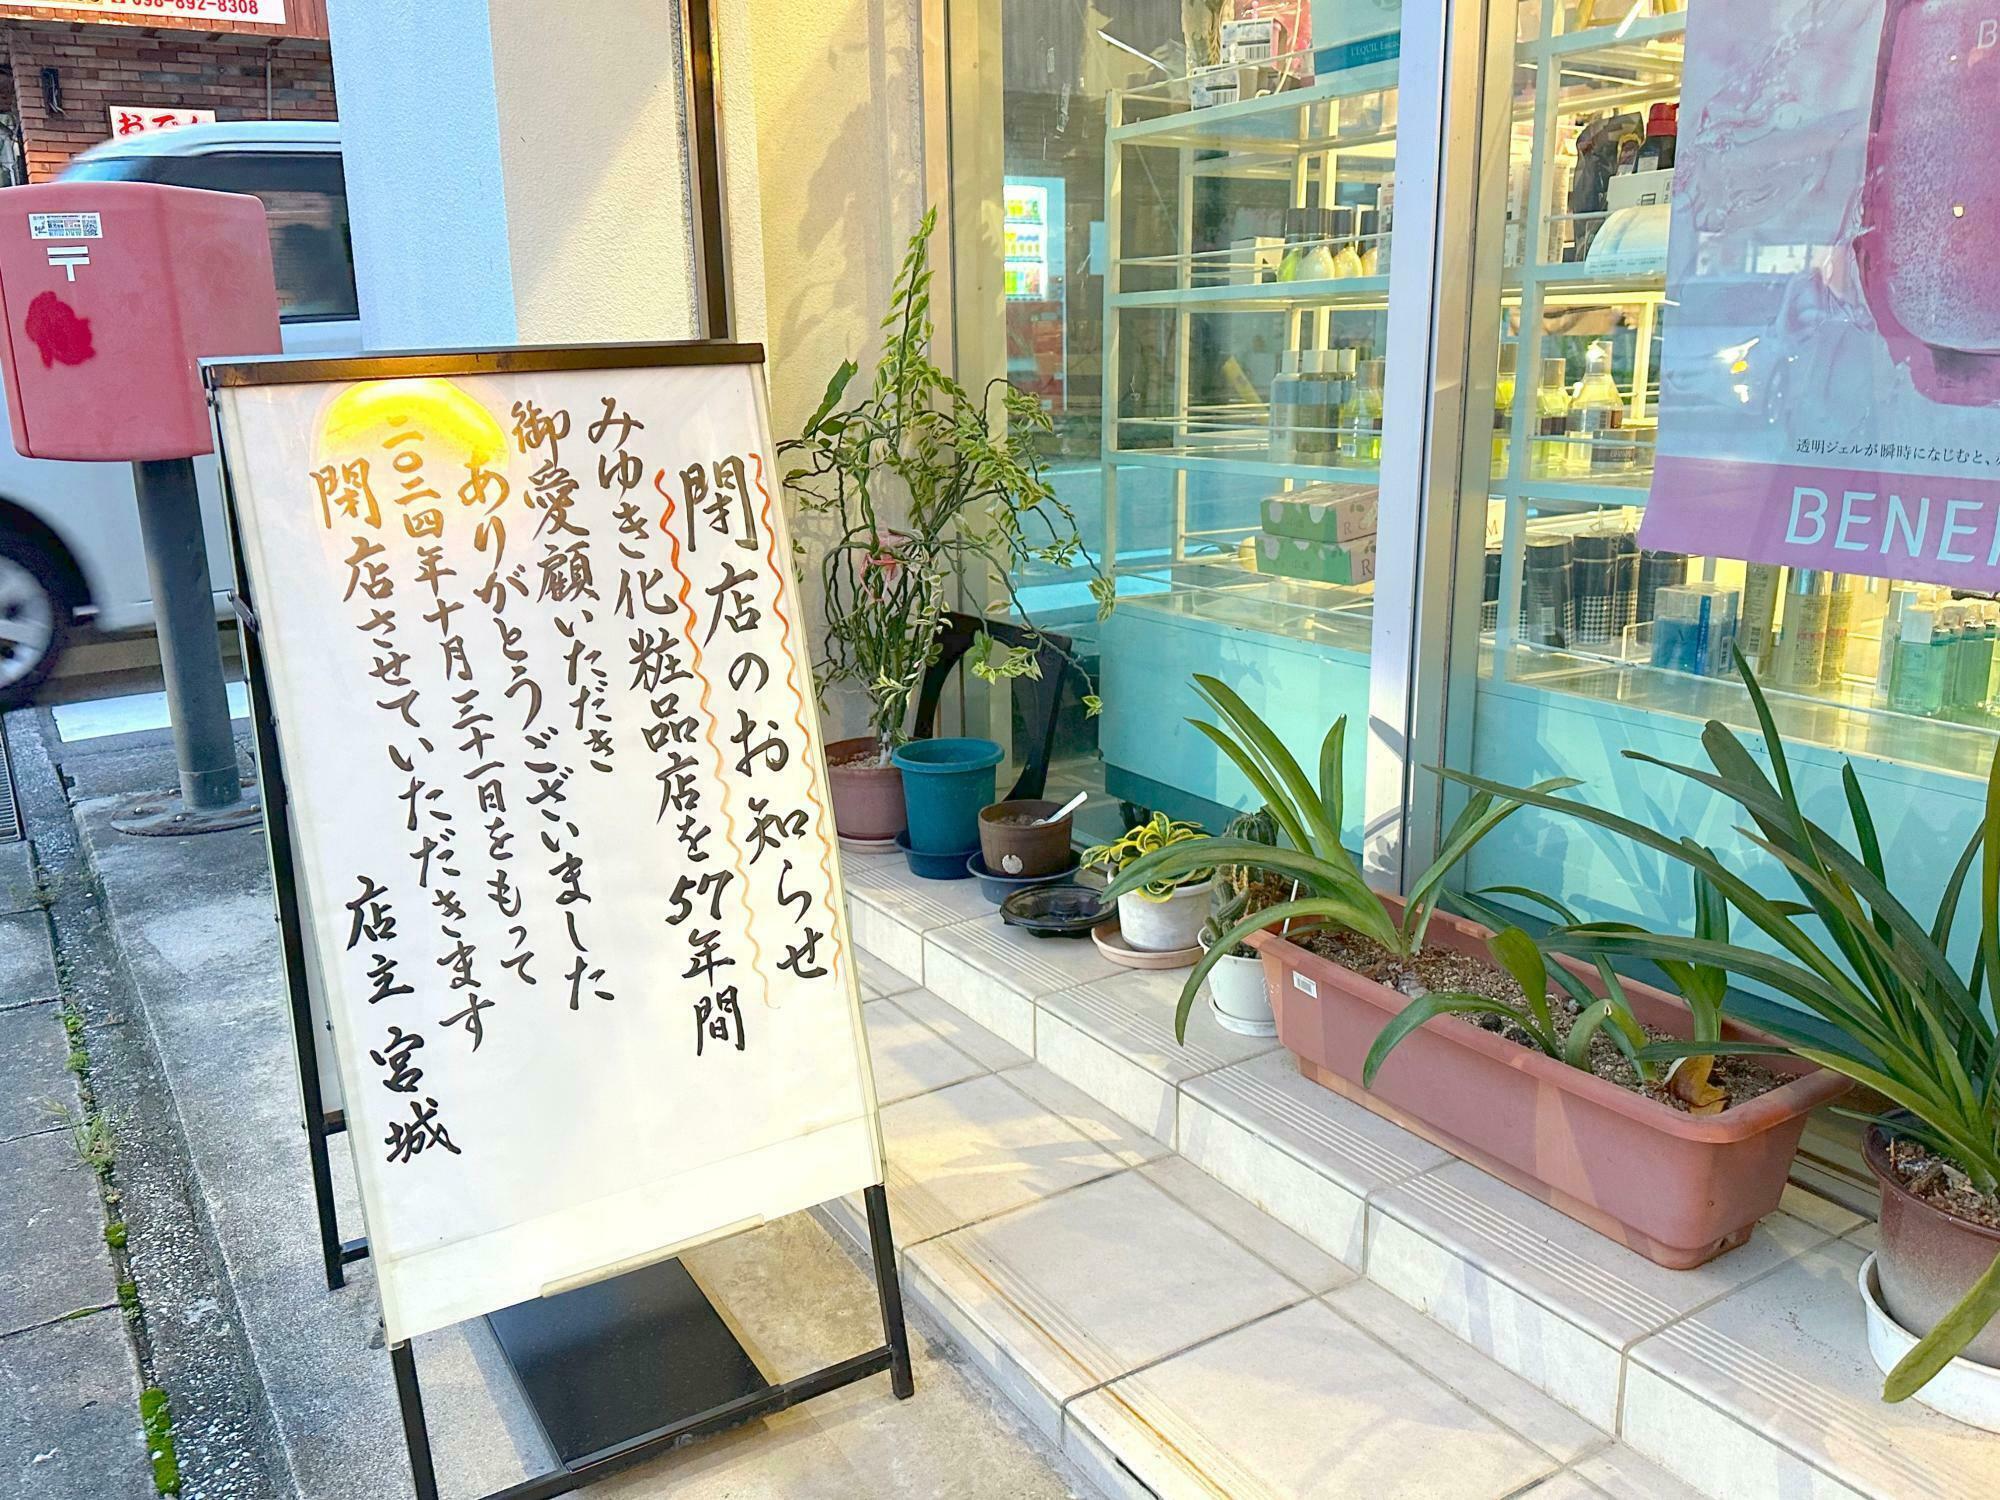 閉店のお知らせ
みゆき化粧品店を57年間
御愛顧いただき
ありがとうございました
二〇二四年十月三十一日をもって
閉店させていただきます
店主 宮城
098-892-8308
おでん
〒
L'EQUIL
透明ジェルが瞬時になじむと、
BENEF